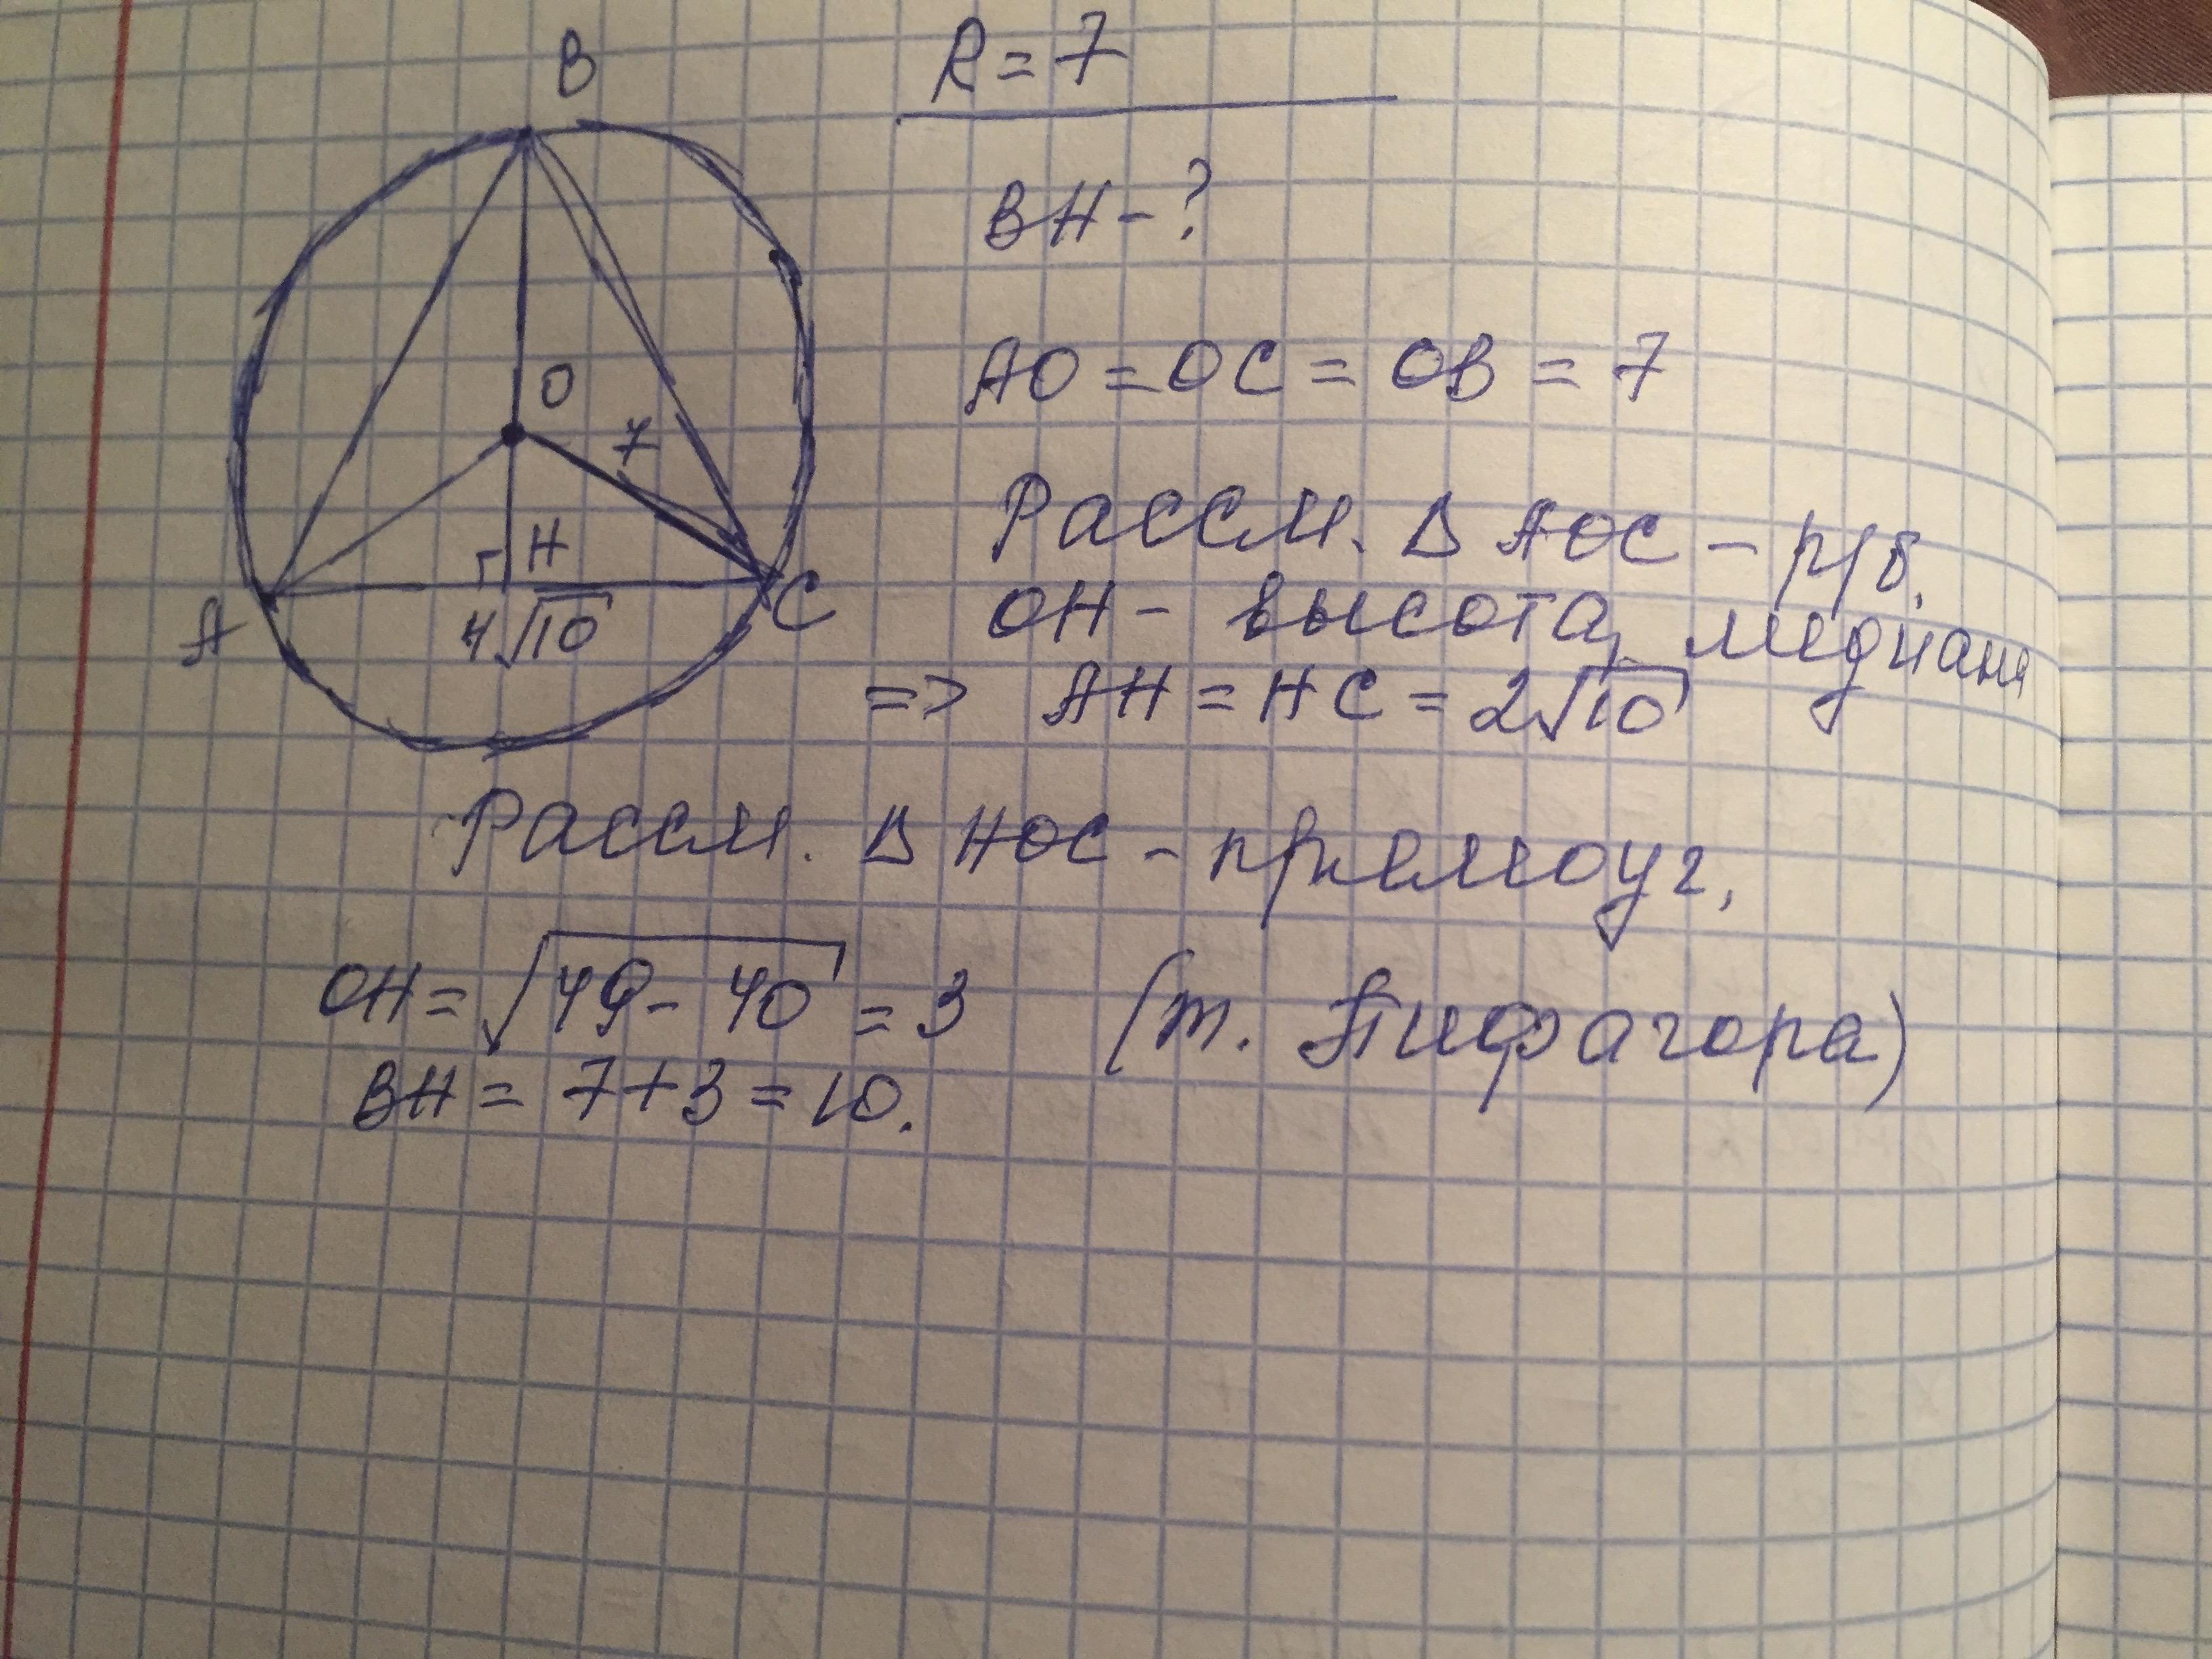 B
R = 7
BH - ?
O
7
AO = OC = OB = 7
Рассм. Δ AOC - р/б,
H
A
4√10
C
OH - высота, медиана
=> AH = HC = 2√10
Рассм. Δ HOC - прямоуг,
OH = √49 - 40 = 3 (т. Пифагора)
BH = 7+3 = 10.